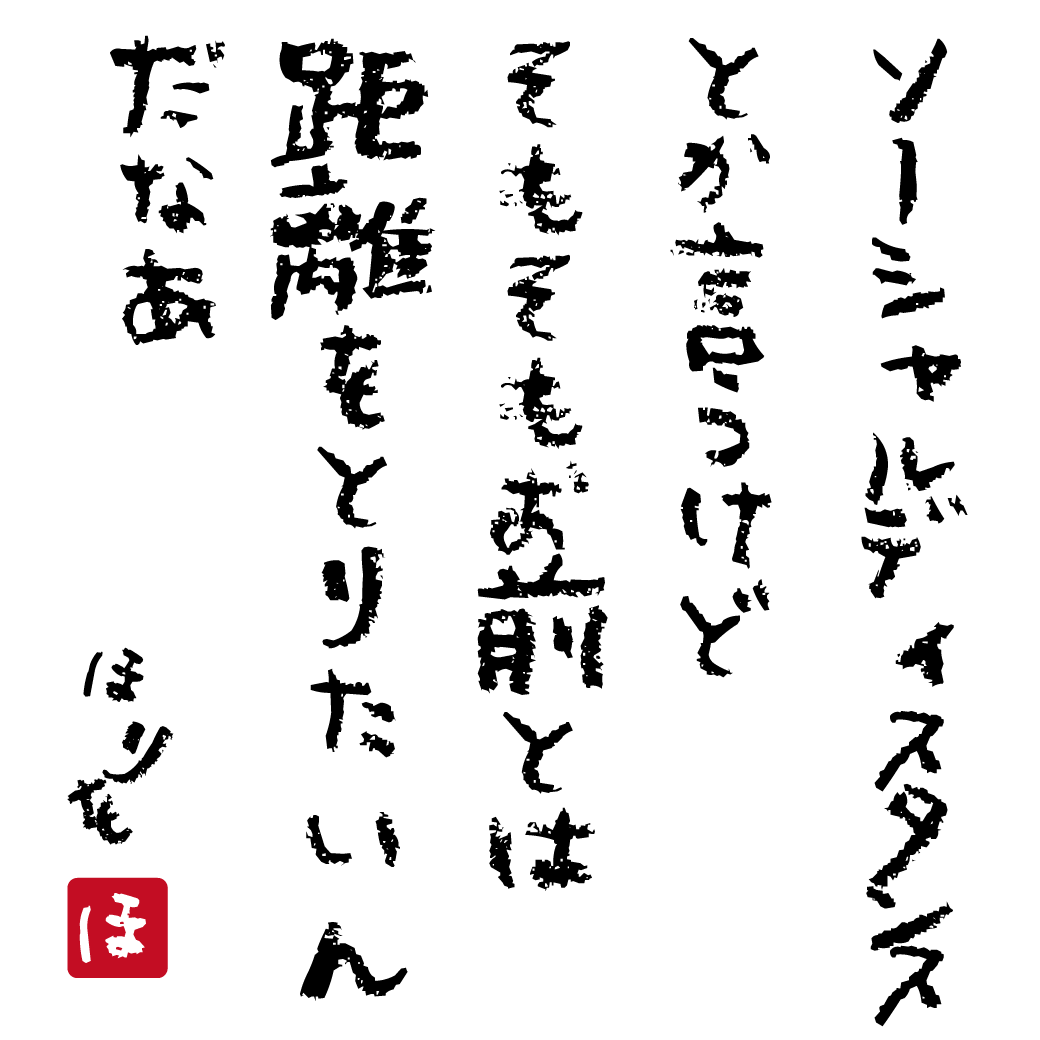 ソーシャルディスタンス
とか言うけど
そもそもお前とは
距離をとりたいん
だなあ
ほりを
ほ